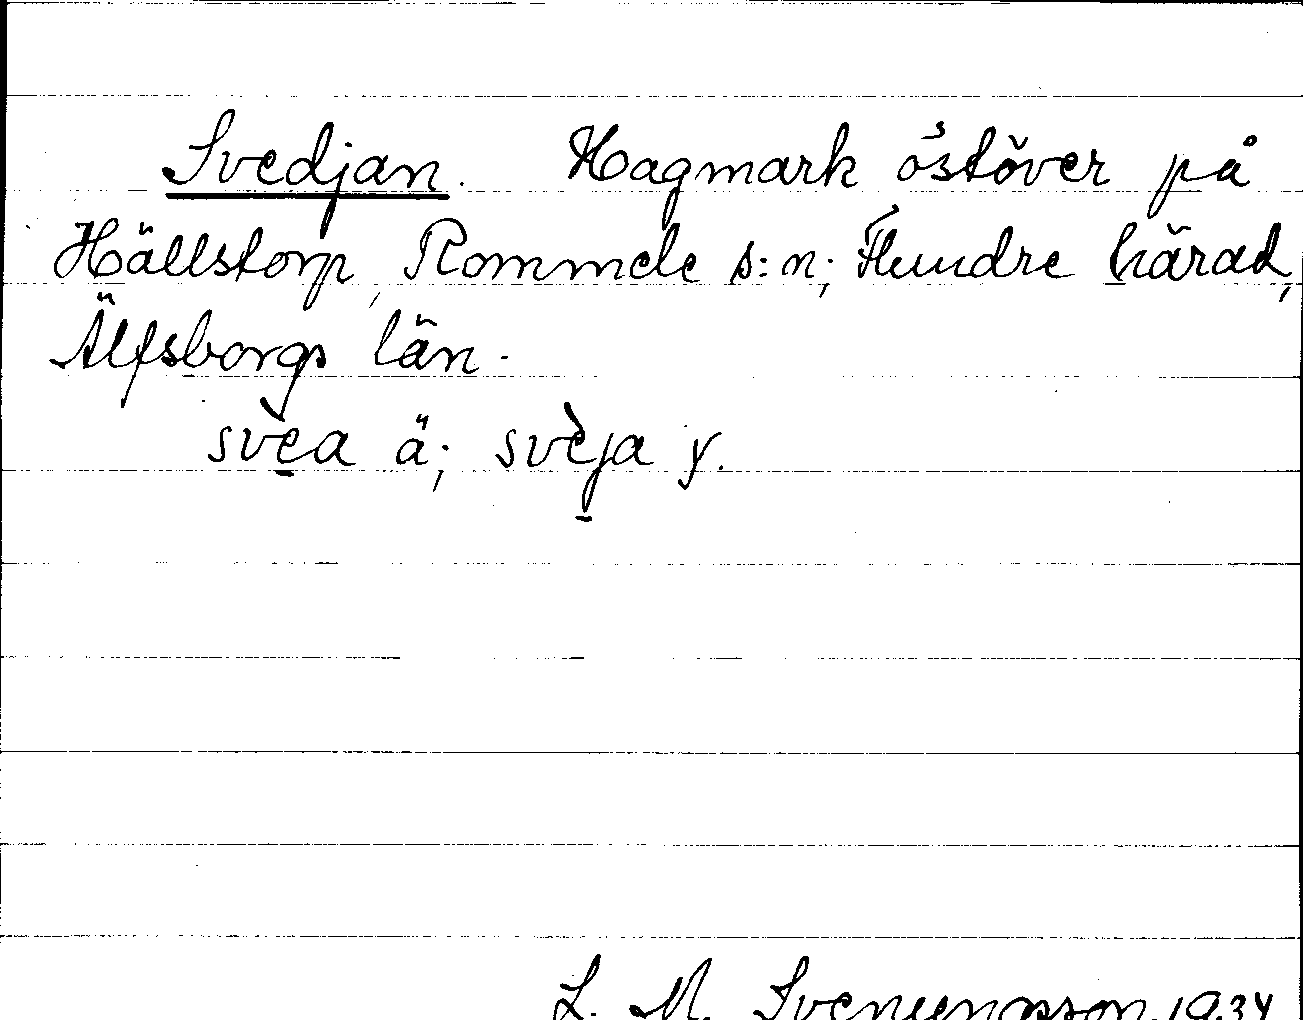 Svedjan. Hagmark östöver på
Hällstorp, Rommele s:n; Flundre härad,
Älfsborgs län.
svèa ä; svèja y.
L. M. Svenungsson 1934